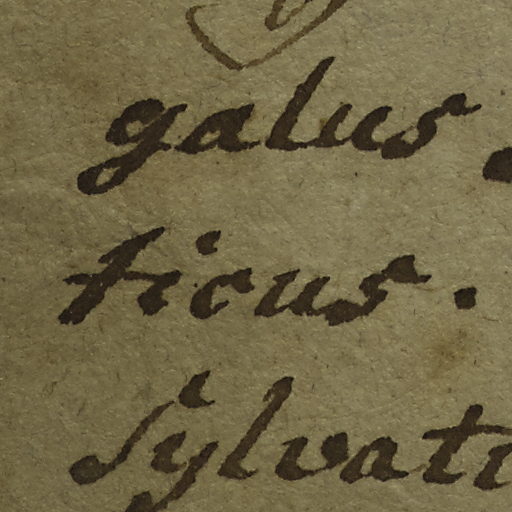 galus
ticus.
Sylvati